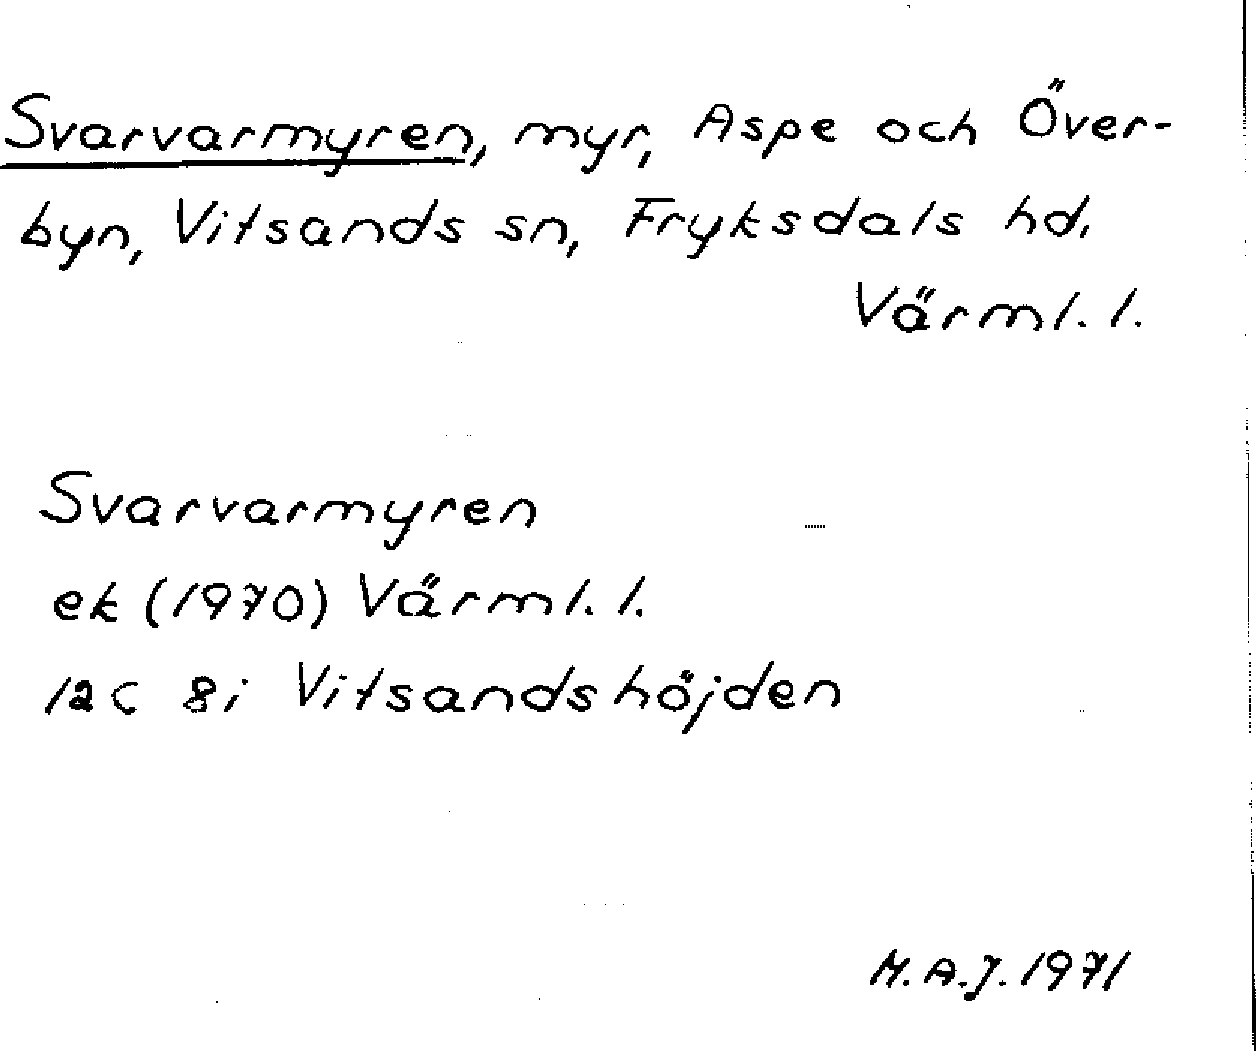 Svarvarmyren, myr, Aspe och Över-
byn, Vitsands sn, Fryksdals hd,
Värml. l.
Svarvarmyren
ek (1970) Värml. l.
12 C 8i Vitsandshöjden
M.A.J. 1971